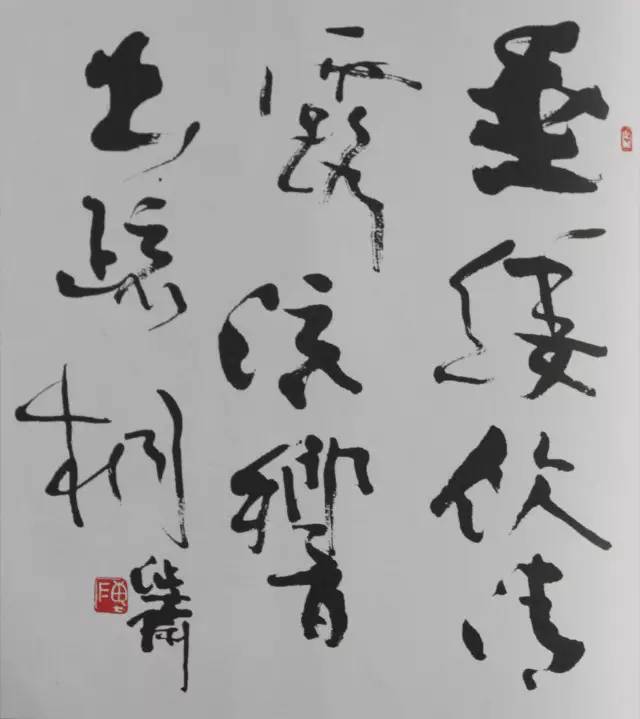 垂緌飲清
露流響
出疏桐